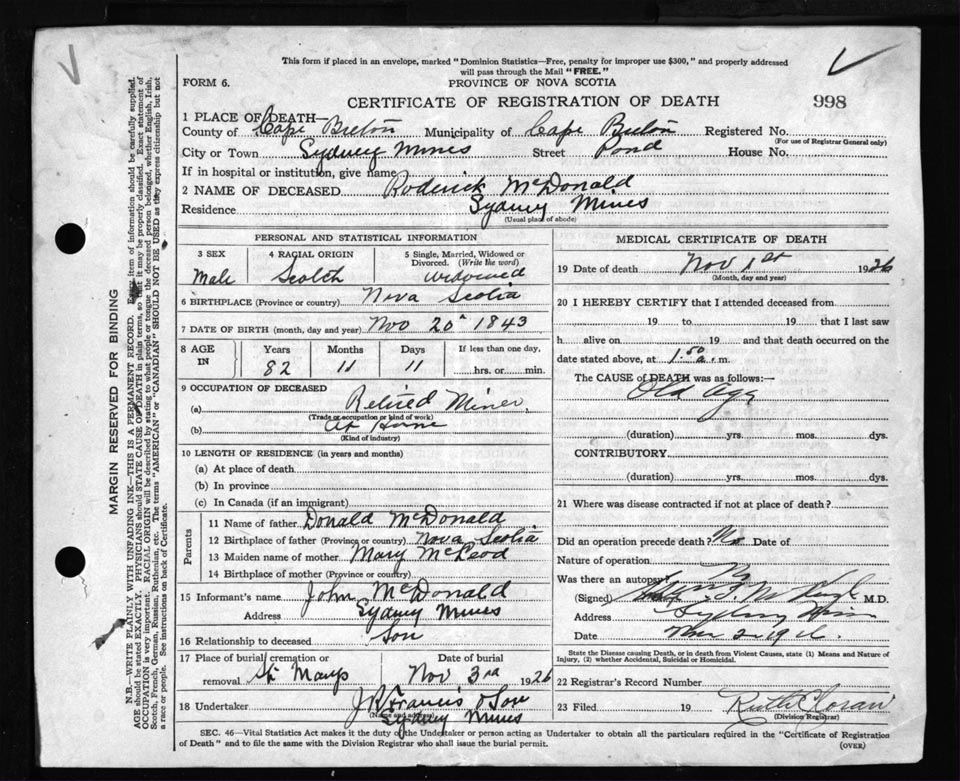 This form if placed in an envelope, marked "Dominion Statistics—Free, penalty for improper use $300," and properly addressed
will pass through the Mail "FREE."
FORM 6.
PROVINCE OF NOVA SCOTIA
CERTIFICATE OF REGISTRATION OF DEATH
998
1 PLACE OF DEATH—
County of Cape Breton Municipality of Cape Breton Registered No.
(For use of Registrar General only)
City or Town Sydney Mines Street Pond House No.
If in hospital or institution, give name
2 NAME OF DECEASED Roderick McDonald
Residence Sydney Mines
(Usual place of abode)
PERSONAL AND STATISTICAL INFORMATION
3 SEX
Male
4 RACIAL ORIGIN
Scotch
5 Single, Married, Widowed or Divorced. (Write the word)
widowed
6 BIRTHPLACE (Province or country) Nova Scotia
7 DATE OF BIRTH (month, day and year) Nov 20 1843
8 AGE IN
Years Months Days If less than one day,
82 11 11 hrs. or min.
9 OCCUPATION OF DECEASED
(a) Retired Miner
(Trade or occupation or kind of work)
(b) At Home
(Kind of industry)
10 LENGTH OF RESIDENCE (in years and months)
(a) At place of death
(b) In province
(c) In Canada (if an immigrant)
Parents
11 Name of father Donald McDonald
12 Birthplace of father (Province or country) Nova Scotia
13 Maiden name of mother Mary McLeod
14 Birthplace of mother (Province or country)
15 Informant's name John McDonald
Address Sydney Mines
16 Relationship to deceased Son
17 Place of burial, cremation or removal St Marys
Date of burial
Nov 3rd 1926
18 Undertaker J Francis & Son
(Name and address)
Sydney Mines
MEDICAL CERTIFICATE OF DEATH
19 Date of death Nov 1st 1926
(Month, day and year)
20 I HEREBY CERTIFY that I attended deceased from
19 to 19 that I last saw
h alive on 19 and that death occurred on the
date stated above, at 1.50 a.m.
The CAUSE of DEATH was as follows:—
Old age
(duration) yrs. mos. dys.
CONTRIBUTORY
(duration) yrs. mos. dys.
21 Where was disease contracted if not at place of death?
Did an operation precede death? No Date of
Nature of operation
Was there an autopsy?
(Signed) M.D.
Address
Date
State the Disease causing Death, or in death from Violent Causes, state (1) Means and Nature of
Injury, (2) whether Accidental, Suicidal or Homicidal.
22 Registrar's Record Number
23 Filed 19 Ruth
(Division Registrar)
SEC. 46—Vital Statistics Act makes it the duty of the Undertaker or person acting as Undertaker to obtain all the particulars required in the "Certificate of Registration
of Death" and to file the same with the Division Registrar who shall issue the burial permit.
(OVER)
MARGIN RESERVED FOR BINDING
N.B.—WRITE PLAINLY WITH UNFADING INK—THIS IS A PERMANENT RECORD. Every item of information should be carefully supplied.
AGE should be stated EXACTLY. PHYSICIANS should STATE CAUSE OF DEATH in plain terms, so that it may be properly classified. Exact statement of
OCCUPATION is very important. RACIAL ORIGIN will be described by stating to what people or tongue the deceased person belonged, whether English, Irish,
Scotch, French, German, Russian, Ruthenian, etc. The terms "AMERICAN" or "CANADIAN" SHOULD NOT BE USED as they express citizenship but not
a race or people. See instructions on back of Certificate.